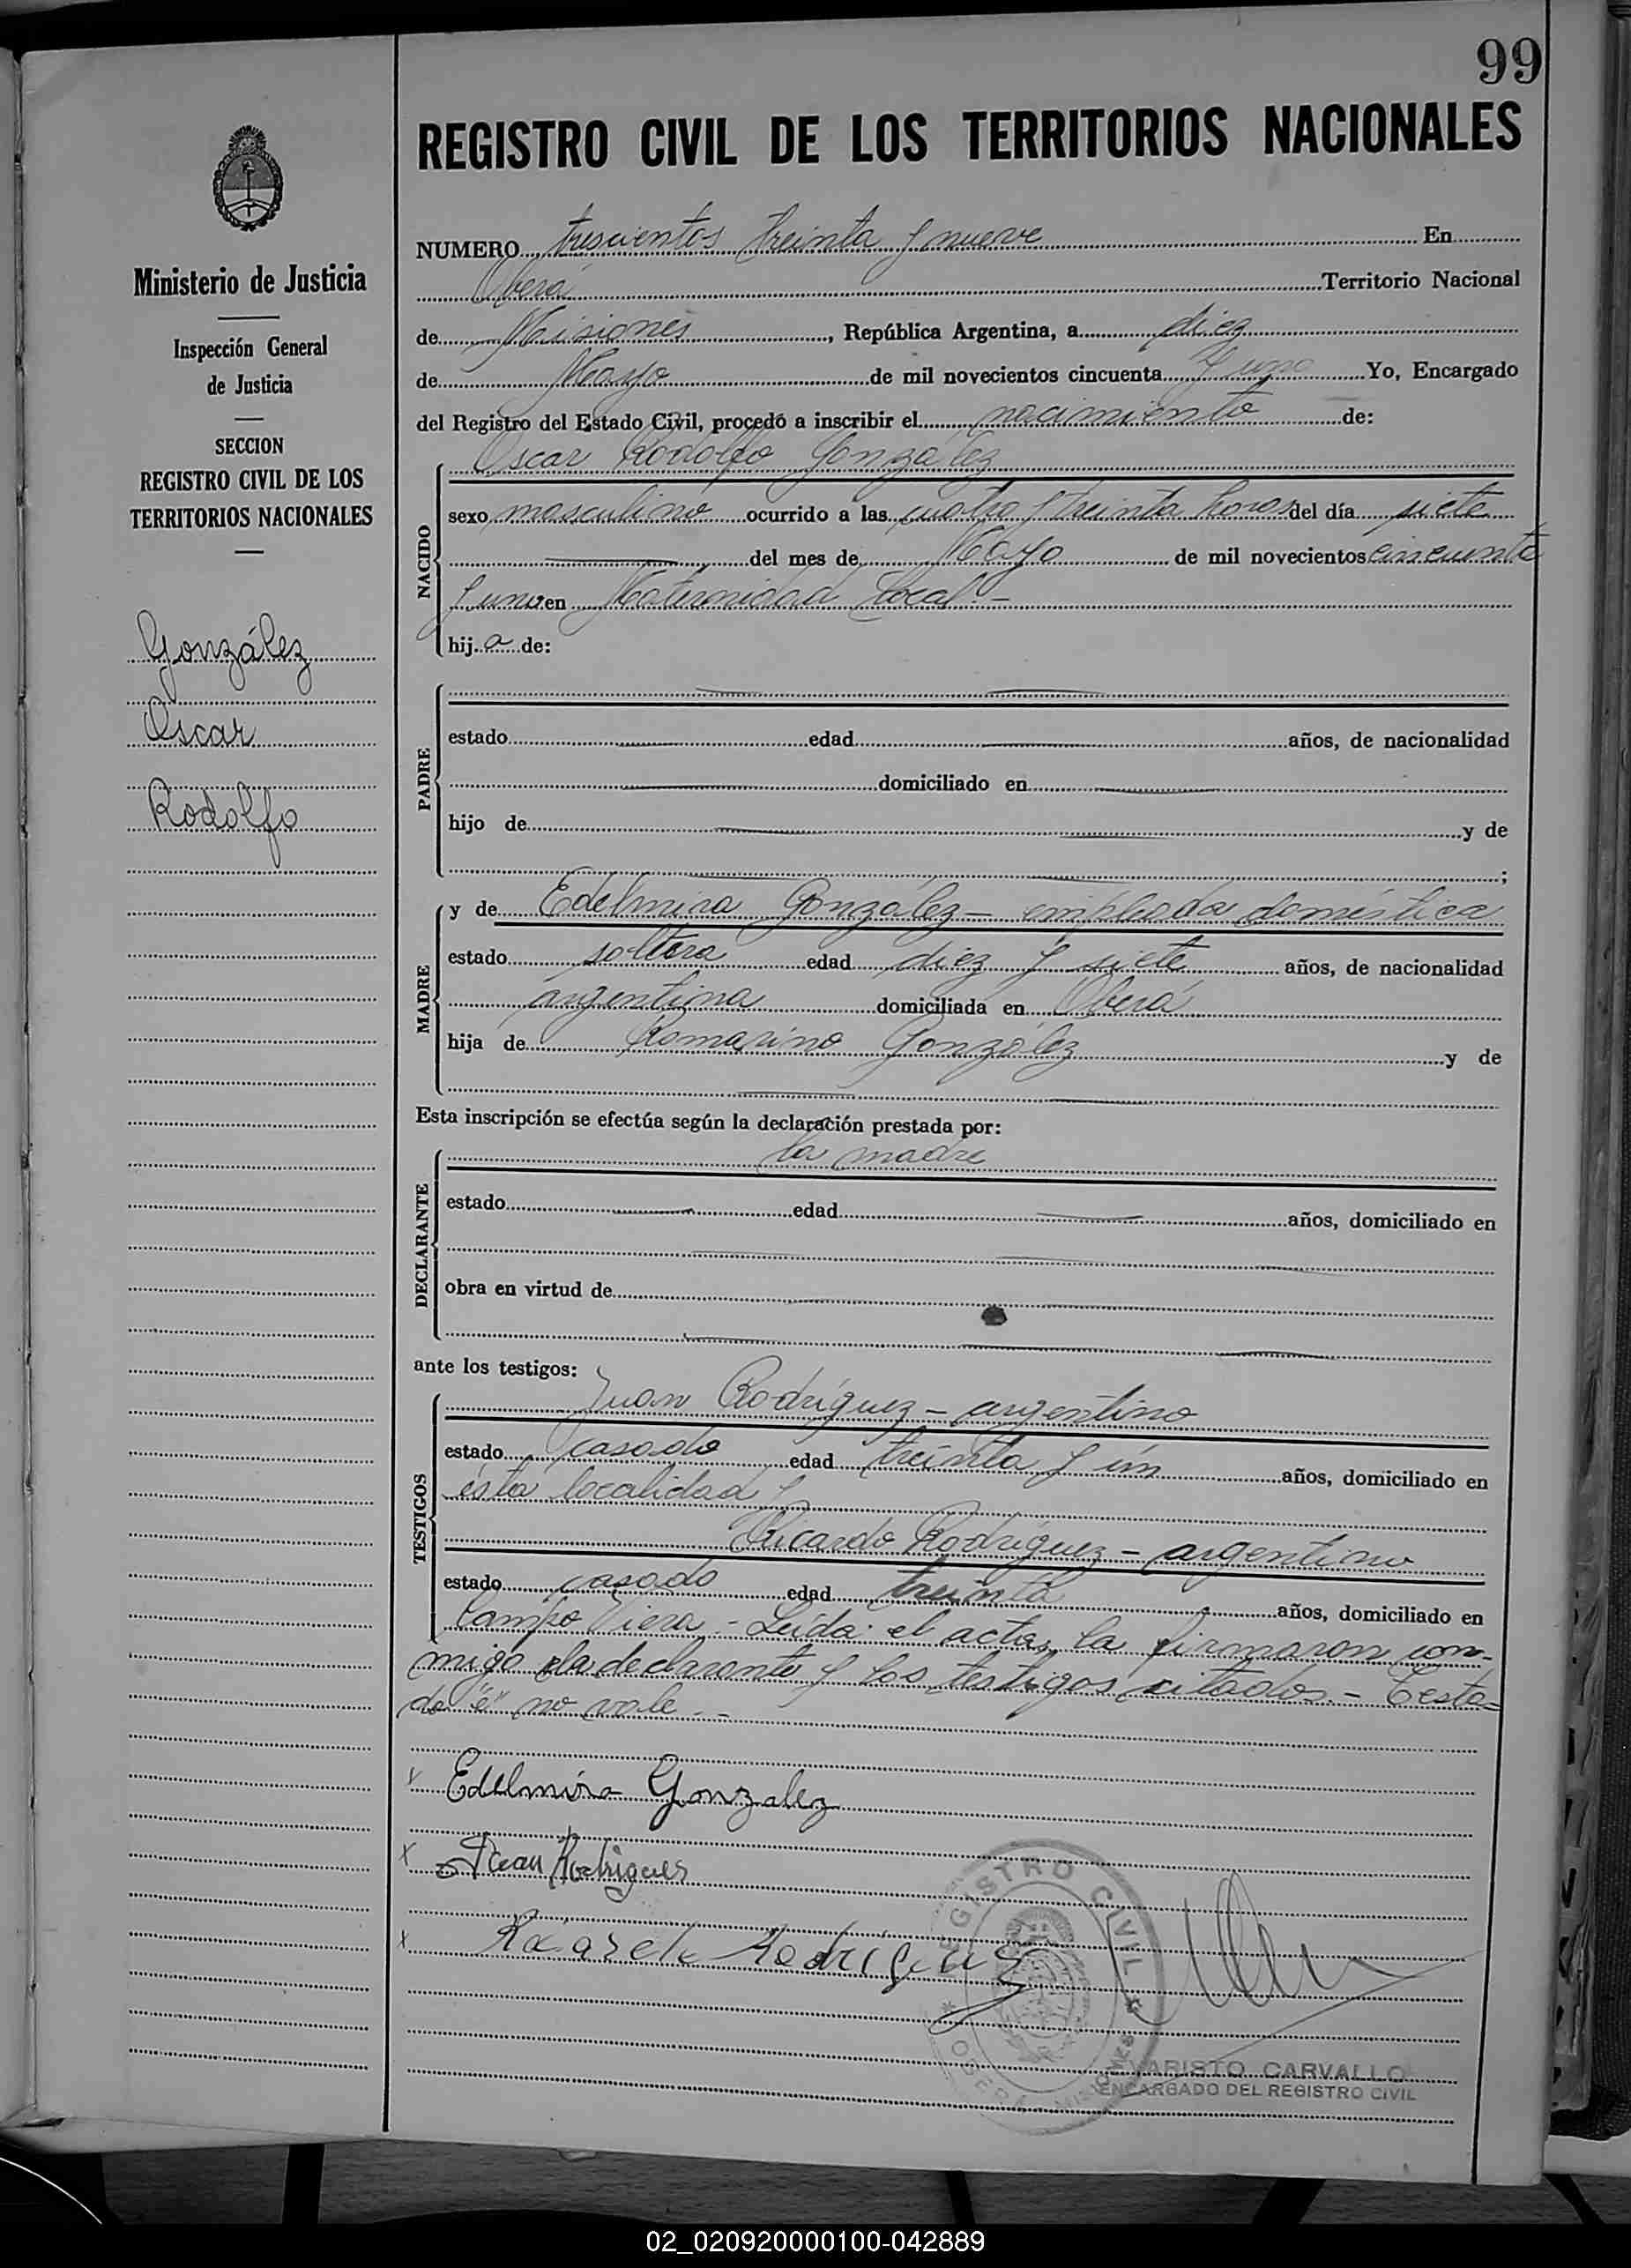 99
REGISTRO CIVIL DE LOS TERRITORIOS NACIONALES
Ministerio de Justicia
Inspección General
de Justicia
SECCION
REGISTRO CIVIL DE LOS
TERRITORIOS NACIONALES
González
Oscar
Rodolfo
NUMERO trescientos treinta y nueve En
Oberá Territorio Nacional
de Misiones, República Argentina, a diez
de Mayo de mil novecientos cincuenta y uno Yo, Encargado
del Registro del Estado Civil, procedo a inscribir el nacimiento de:
NACIDO
Oscar Rodolfo González
sexo masculino ocurrido a las cuatro y treinta horas del día siete
del mes de Mayo de mil novecientos cincuenta
y uno en Maternidad Local.-
hij o de:
PADRE
estado edad años, de nacionalidad
domiciliado en
hijo de y de
;
MADRE
y de Edelmira González - empleada doméstica
estado soltera edad diez y siete años, de nacionalidad
argentina domiciliada en Oberá
hija de Romarino González y de
Esta inscripción se efectúa según la declaración prestada por:
DECLARANTE
la madre
estado edad años, domiciliado en
obra en virtud de
ante los testigos:
TESTIGOS
Juan Rodríguez - argentino
estado casado edad treinta y un años, domiciliado en
ésta localidad y
Ricardo Rodríguez - argentino
estado casado edad treinta años, domiciliado en
Campo Viera.- Leída el acta, la firmaron con-
migo la declarante y los testigos citados.- Testa-
do "e" no vale.-
x Edelmira Gonzalez
x Juan Rodrigues
x Rodríguez
REGISTRO CIVIL
OBERA MISIONES
EVARISTO CARVALLO
ENCARGADO DEL REGISTRO CIVIL
02_020920000100-042889